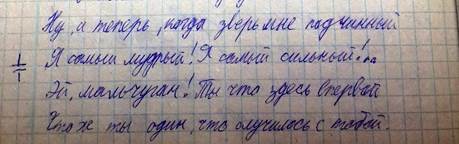 Ну, а теперь, когда зверь мне подчинный
Я самый мудрый! Я самый сильный!
Эй, мальчуган! Ты что здесь впервой
Что ж ты один, что случилось с тобой.